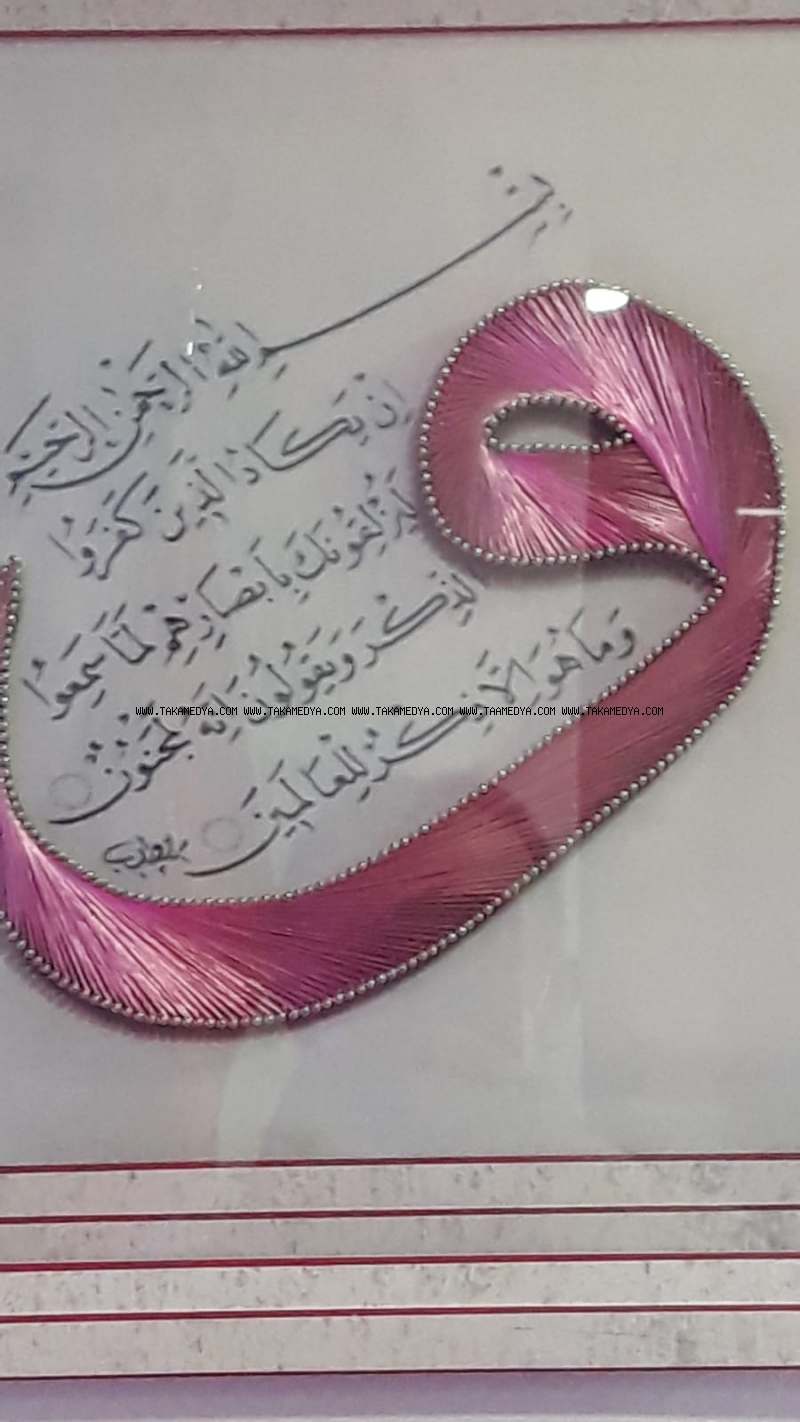 بسم الله الرحمن الرحيم
اِنْ يَكَادُ الَّذِينَ كَفَرُوا
لَيُزْلِقُونَكَ بِاَبْصَارِهِمْ لَمَّا سَمِعُوا
الذِّكْرَ وَيَقُولُونَ اِنَّهُ لَمَجْنُونٌ
وَمَا هُوَ اِلَّا ذِكْرٌ لِلْعَالَمِينَ
و
WWW.TAKAMEDYA.COM WWW.TAKAMEDYA.COM WWW.TAKAMEDYA.COM WWW.TAAMEDYA.COM WWW.TAKAMEDYA.COM